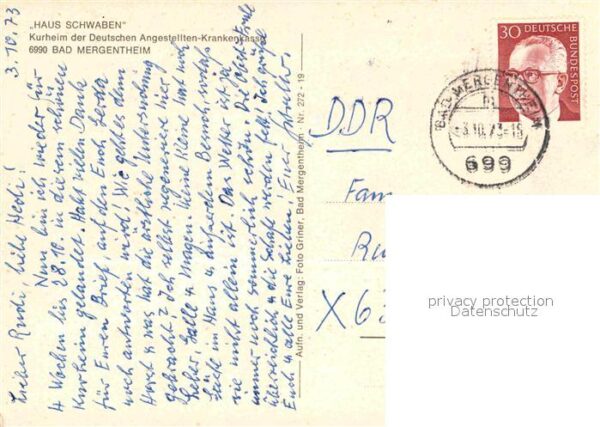 „HAUS SCHWABEN"
Kurheim der Deutschen Angestellten-Krankenkasse
6990 BAD MERGENTHEIM
3.10.73
Lieber Rudi, liebe Hedi!
Nun bin ich wieder für
4 Wochen bis 28.10. in diesem schönen
Kurheim gelandet. Habt vielen Dank
für Euren Brief, auf den Euch Gerda
noch antworten wird! Wie geht es denn
Horst u. was hat die ärztliche Untersuchung
gebracht? Ich selbst regeneriere hier
Leber, Galle u. Magen. Meine Kleine hat sich
Leute in Haus u. Garten
sie nicht allein ist. Das Wetter ist ja
immer noch sommerlich schön. Die
u. die Schafe werden fett. Ich grüße
Euch u. alle Eure Lieben! Euer
Aufn. und Verlag: Foto Griner, Bad Mergentheim - Nr. 272 - 19
DDR
Fam
Ru
X63
30 DEUTSCHE
BUNDESPOST
BAD MERGENTHEIM
-3.10.73-16
699
privacy protection
Datenschutz